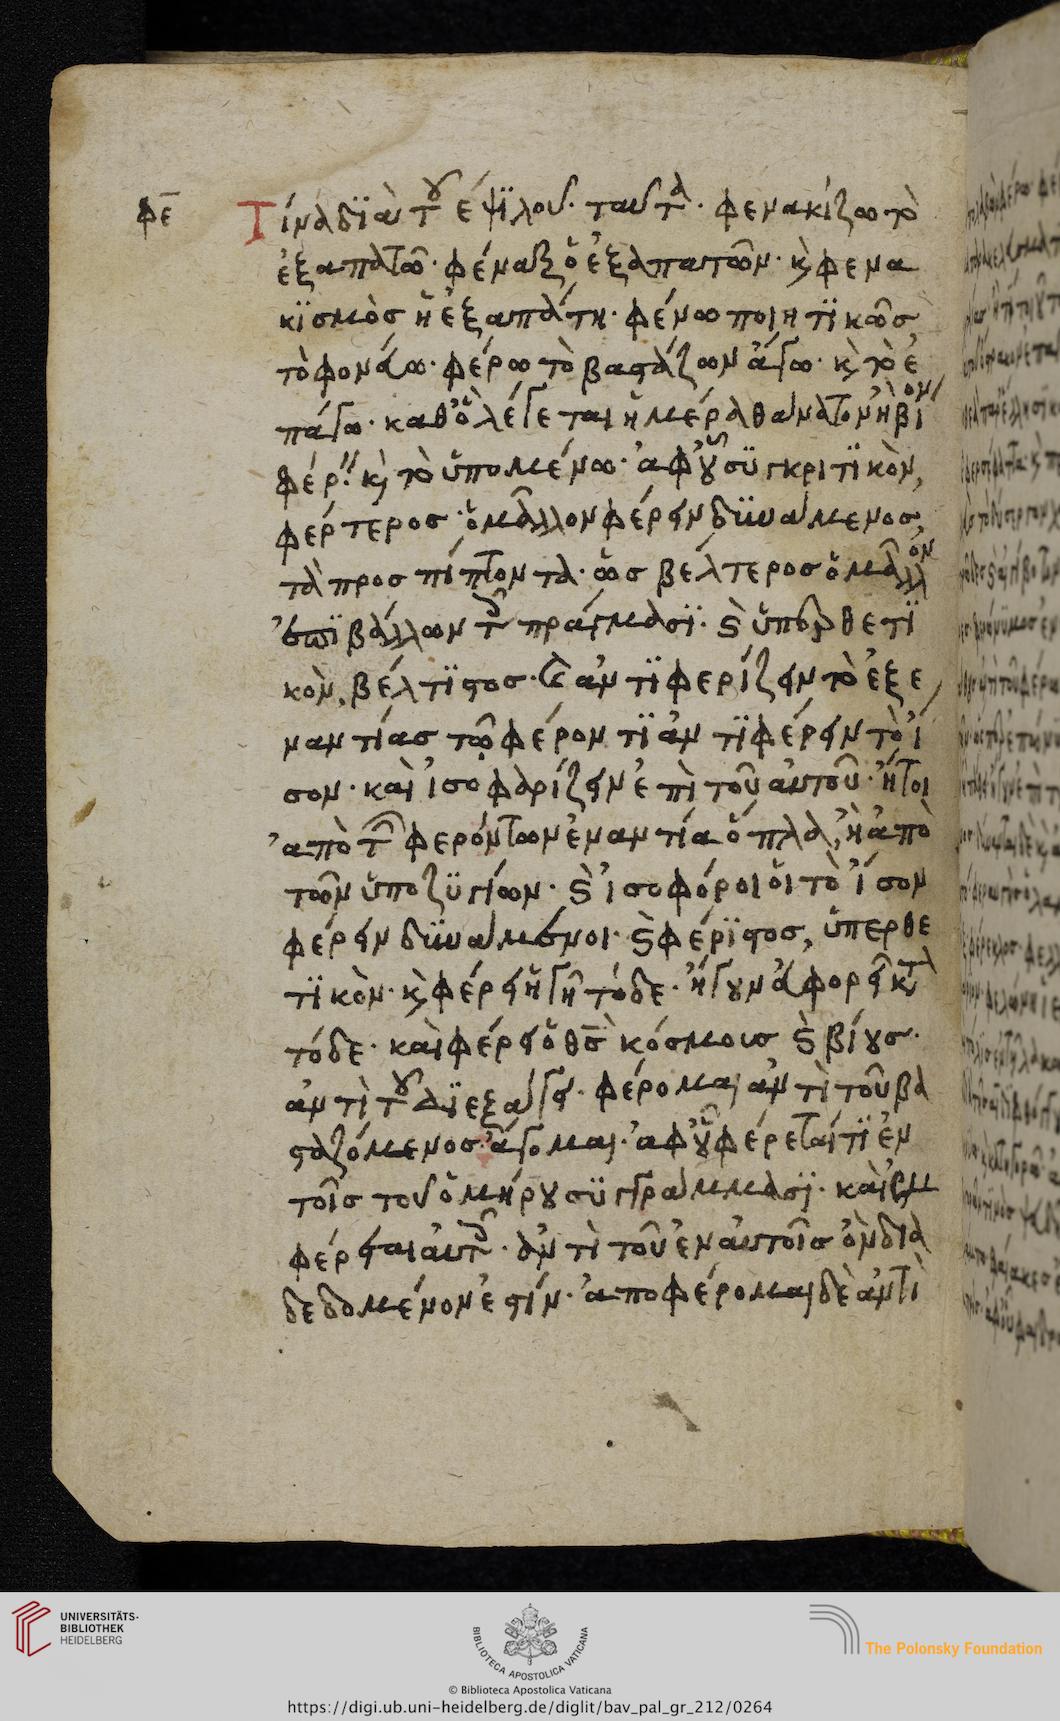 φε
Τίνα διὰ τοῦ ἐψϊλοῦ· ταῦτα· φενακίζω τὸ
ἐξαπατῶ· φέναξ ὁ ἐξαπατῶν· κ φενα
κϊσμὸσ ἡ ἐξαπάτη· φένω ποιητϊκῶσ,
τὸ φονεύω· φέρω τὸ βαστάζων ἄγω· κ τὸ ἐ
πάγω· καθ' ὃ λέγεται ἡμέρα θανατον ἢ βίον
φέρει κ τὸ ὑπομένω· ἀφ' οὗ συγκριτϊκὸν,
φέρτεροσ ὁ μᾶλλον φέρειν δϋνάμενοσ,
τὰ προσπίπτοντα· ὡσ βέλτεροσ ὁ μᾶλλον
ἐπϊβάλλων τοῖς πράγμασϊ· κ ὑπερθετϊ
κὸν, βέλτϊστοσ· ἐξ ἀντϊφερίζειν τὸ ἐξ ἐ
ναντίασ τῶ φέροντϊ ἀντϊφέρειν τὸ ἴ
σον· καὶ ἰσοφαρίζειν ἐπὶ τοῦ αὐτοῦ· ἤτοι
ἀπὸ τῶν φερόντων ἐναντία ὅπλα, ἢ ἀπὸ
τῶν ὑποζϋγίων· κ ἰσοφόροι οἱ τὸ ἴσον
φέρειν δϋνάμενοι· κ φέρϊστοσ, ὑπερθε
τϊκὸν· κ φέρει ἡ γῆ τόδε· ἤγουν εὐφορεῖ κατὰ
τόδε· καὶ φέρει ὁ θς κόσμουσ κ βίουσ·
ἀντὶ τοῦ διεξάγει· φέρομαι ἀντὶ τοῦ βα
σταζόμενοσ ἄγομαι· ἀφ' οὗ φέρεταίτϊ ἐν
τοῖσ τοῦ ὁμήρου συγγράμμασϊ· καὶ ἐμ
φέρεται αὐτοῖς· ἀντὶ τοῦ ἐν αὐτοῖσ ὂν δϊα
δεδομένον ἐστίν· ἀποφέρομαι δὲ ἀντὶ
UNIVERSITÄTS-
BIBLIOTHEK
HEIDELBERG
BIBLIOTECA APOSTOLICA VATICANA
The Polonsky Foundation
© Biblioteca Apostolica Vaticana
https://digi.ub.uni-heidelberg.de/diglit/bav_pal_gr_212/0264